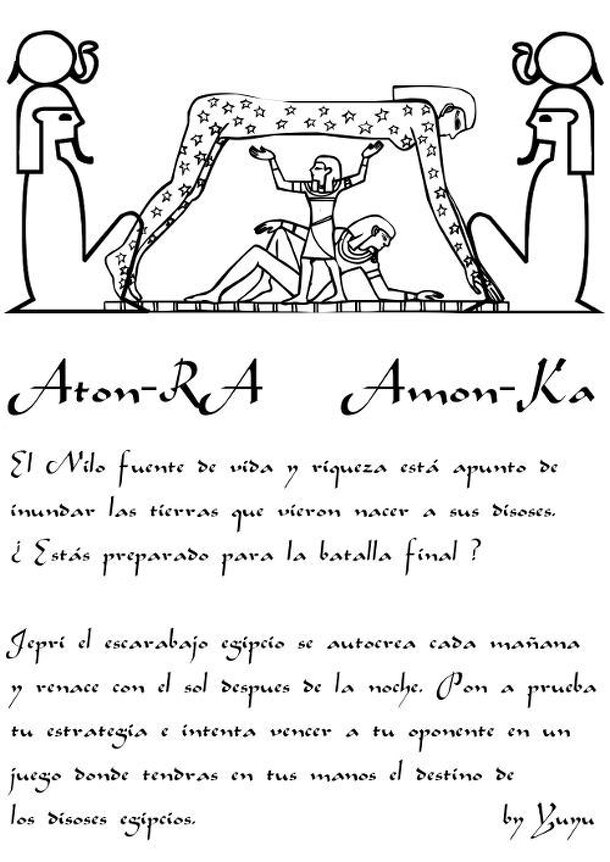 Aton-RA Amon-Ka
El Nilo fuente de vida y riqueza está apunto de
inundar las tierras que vieron nacer a sus disoses.
¿ Estás preparado para la batalla final ?
Jepri el escarabajo egipcio se autocrea cada mañana
y renace con el sol despues de la noche. Pon a prueba
tu estrategia e intenta vencer a tu oponente en un
juego donde tendras en tus manos el destino de
los disoses egipcios. by Yuyu